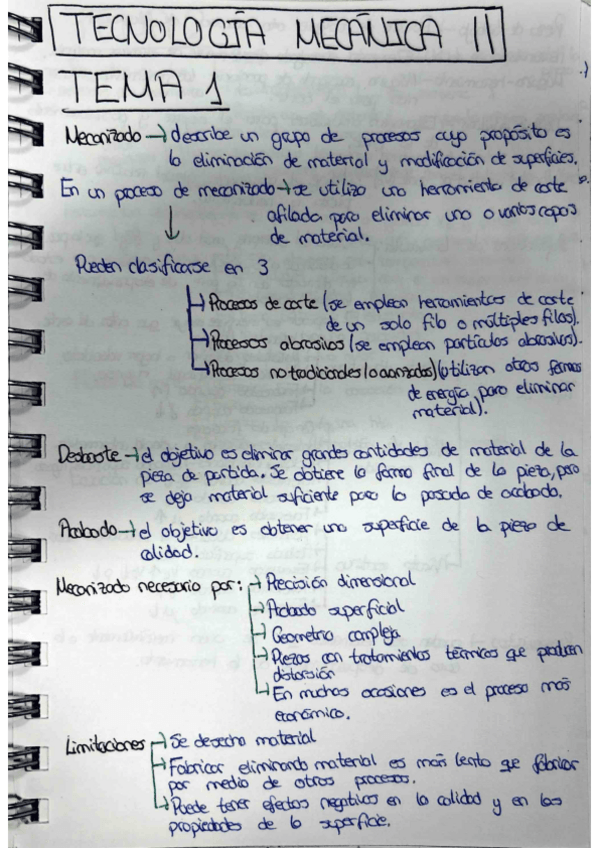 TECNOLOGÍA MECÁNICA II
TEMA 1
Mecanizado → describe un grupo de procesos cuyo propósito es
la eliminación de material y modificación de superficies.
En un proceso de mecanizado → se utiliza una herramienta de corte
afilada para eliminar una o varias capas
de material.
Pueden clasificarse en 3
Procesos de corte (se emplean herramientas de corte
de un solo filo o múltiples filos).
Procesos abrasivos (se emplean partículas abrasivas).
Procesos no tradicionales (o avanzados) (utilizan otras formas
de energía para eliminar
material).
Desbaste → el objetivo es eliminar grandes cantidades de material de la
pieza de partida. Se obtiene la forma final de la pieza, pero
se deja material suficiente para la pasada de acabado.
Acabado → el objetivo es obtener una superficie de la pieza de
calidad.
Mecanizado necesario por: → Precisión dimensional
→ Acabado superficial
→ Geometría compleja
→ Piezas con tratamientos térmicos que producen
distorsión
→ En muchas ocasiones es el proceso más
económico.
Limitaciones → Se desecha material
→ Fabricar eliminando material es más lento que fabricar
por medio de otros procesos.
→ Puede tener efectos negativos en la calidad y en las
propiedades de la superficie.